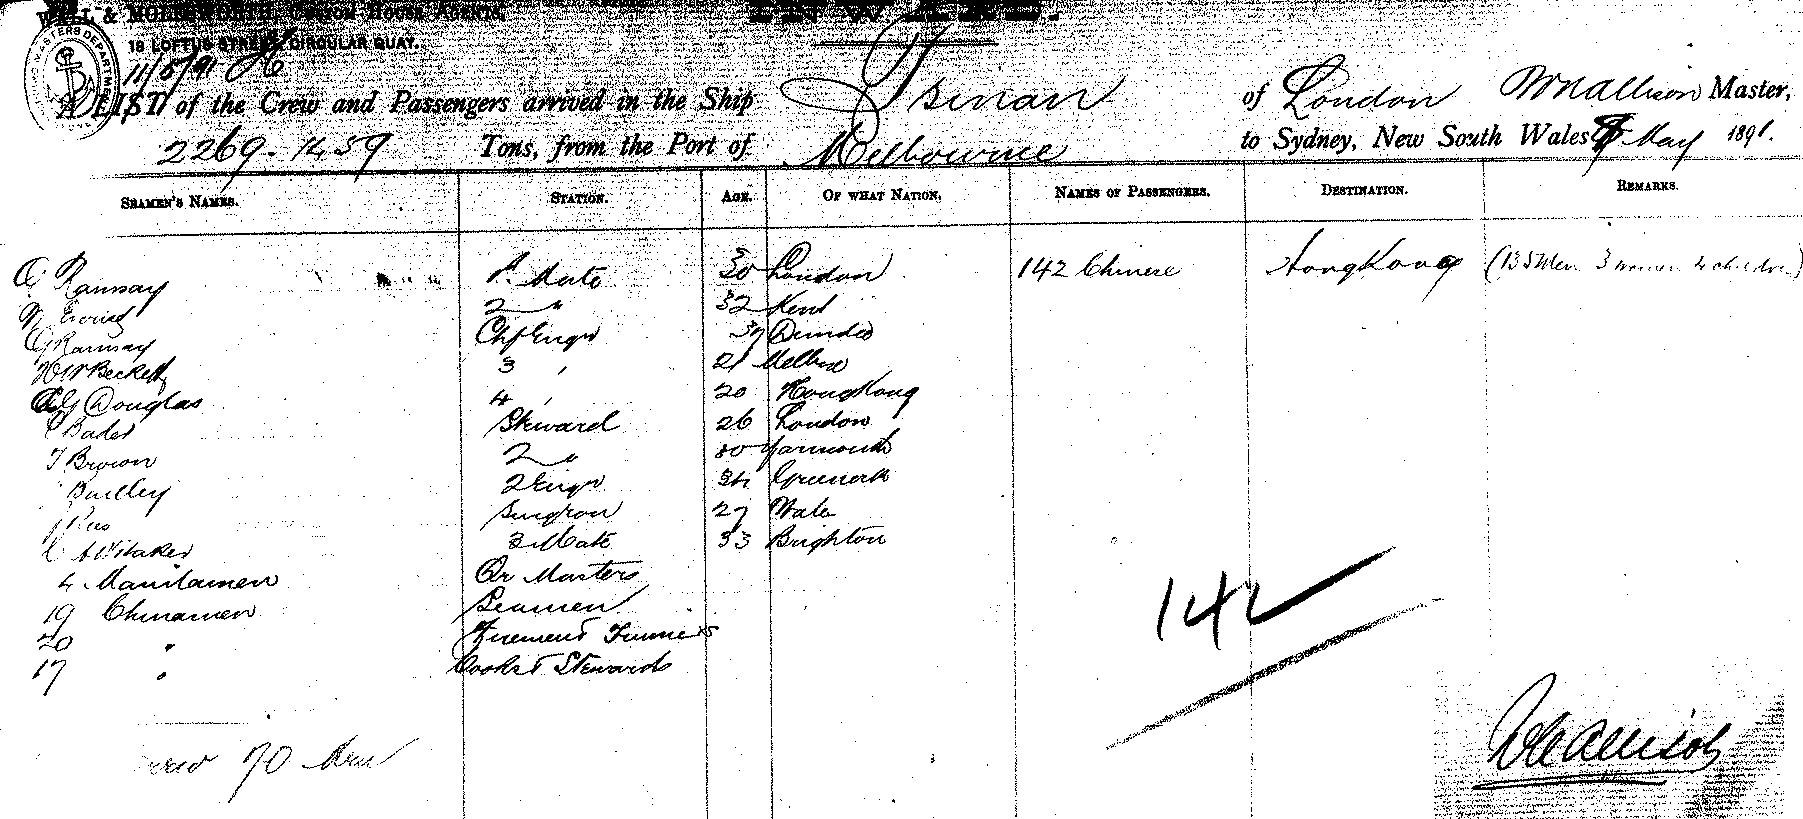 WALL & MOLESWORTH, CUSTOM-HOUSE AGENTS,
INWARD.
18 LOFTUS STREET, CIRCULAR QUAY.
11/5/91
A LIST of the Crew and Passengers arrived in the Ship Tsinan of London Wm Allison Master,
2269. 1459 Tons, from the Port of Melbourne to Sydney, New South Wales May 1891.
SEAMEN'S NAMES. STATION. AGE. OF WHAT NATION. NAMES OF PASSENGERS. DESTINATION. REMARKS.
Ramsay 1st Mate 30 London 142 Chinese HongKong (135 Men 3 women 4 children)
2 " 32 Kent
G Ramsay Chf Engr 37 Dundee
H W Beckett 3 , 21 Melbne
G Douglas 4 , 20 HongKong
Steward 26 London
T Brown 2 " 30 Yarmouth
2 Engr Greenock
Rees Surgeon 27 Wales
Witaker 3 Mate 33 Brighton
4 Manilamen Qr Masters
19 Chinamen Seamen
20 " Firemen & Trimmers
17 " Cooks & Stewards
142
Crew 70 Men
Wm Allison